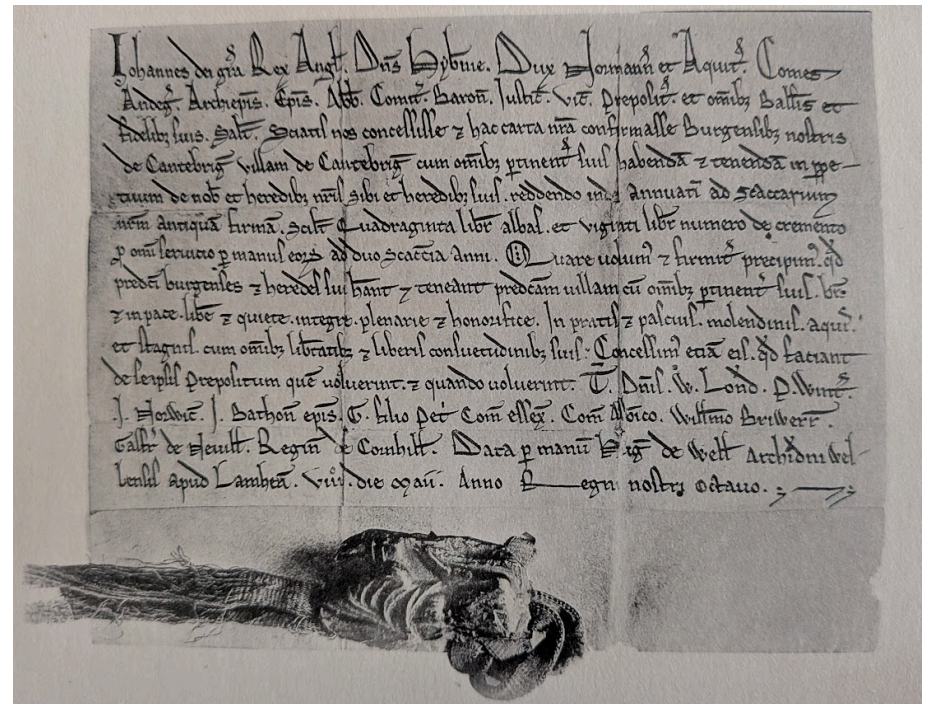 Iohannes dei gr̃a Rex Angł. Dñs Hyb̃nie. Dux Normann̄ et Aquit̃. Comes
Andeg̃. Archiep̃is. Ep̃is. Abb̃. Comit̃. Baron̄. Iustic̃. Vic̃. Prepoſit̃. et om̃ibꝫ Balłis et
fidelibꝫ ſuis. Salt̃. Sciatis nos conceſſiſſe ⁊ hac carta nr̃a confirmaſſe Burgenſibꝫ noſtris
de Cantebrig̃ villam de Cantebrig̃ cum om̃ibꝫ ꝑtinent̃ ſuiſ habendā ⁊ tenendā in ꝑpe-
tuum de nob̃ et heredibꝫ nr̃iſ ſibi et heredibꝫ ſuiſ. reddendo inde annuatī ad Scaccarium
nr̃m antiquā firmā. Scilt̃ Quadraginta libr̃ albaſ. et viginti libr̃ numero de cremento
ꝑ om̃i ſeruicio ꝑ manuſ eoꝝ ad duo Scacc̃ia Anni. Quare volum᷒ ⁊ firmit̃ precipim᷒. qd̃
predc̃i burgenſes ⁊ heredeſ ſui hãnt ⁊ teneant predc̃am villam cū om̃ibꝫ ꝑtinent̃ ſuiſ. bñ
⁊ in pace. lib̃e ⁊ quiete. integre. plenarie ⁊ honorifice. In pratiſ ⁊ paſcuiſ. molendiniſ. aquiſ.
et ſtagniſ. cum om̃ibꝫ lib̃tatibꝫ ⁊ liberiſ conſuetudinibꝫ ſuiſ. Conceſſim᷒ etiā eiſ. qd̃ faciant
de ſeipſiſ Prepoſitum quē voluerint. ⁊ quando voluerint. T̃. Dñiſ. W. Lond̃. P. Wint̃.
J. Norwic̃. J. Bathon̄ ep̃is. G. filio Pet̃ Com̃ eſſex̃. Com̃ Alb̃ico. Willm̃o Briwerr̃.
Galfr̃ de Neviłł. Regin̄ de Cornhiłł. Data ꝑ manū Hug̃ de Wełł Archid̃ni Wel-
lenſiſ apud Lamheā. viij. die Maii. Anno Regni noſtri octavo.